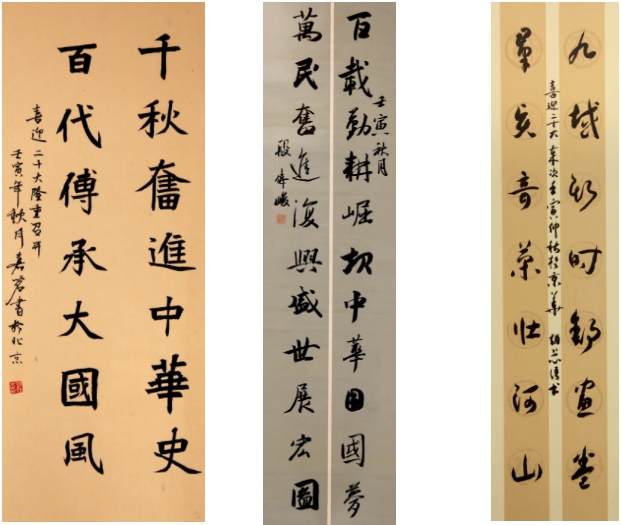 千秋奮進中華史
百代傳承大國風
喜迎二十大隆重召開
壬寅年秋月嘉
書於北京
百載勤耕崛起中華圓國夢
壬寅秋月
萬民奮進復興盛世展宏圖
九域新时鋪畫卷
喜迎二十大 歲次壬寅仲秋於京華
壯河山